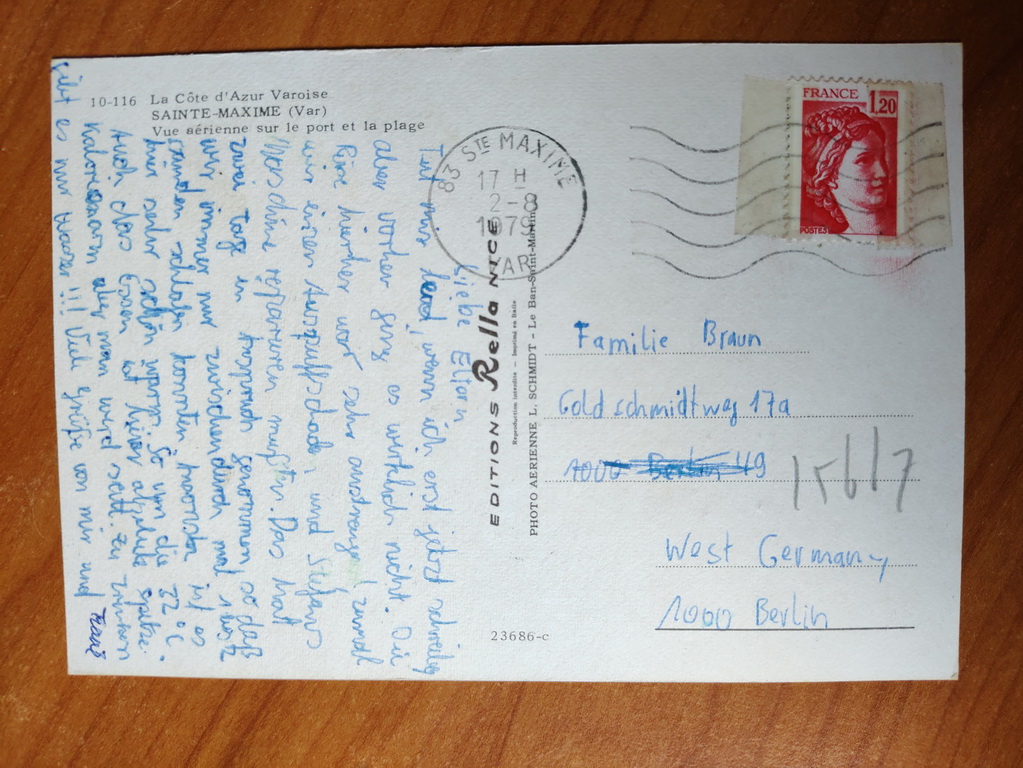 10-116 La Côte d'Azur Varoise
SAINTE-MAXIME (Var)
Vue aérienne sur le port et la plage
Liebe Eltern
Tut mir leid, wenn ich erst jetzt schreibe,
aber vorher ging es wirklich nicht. Die
Reise hierher war sehr anstrengend zumal
wir einen Auspuffschaden, und Stefans
Maschine reparieren mußten. Das hat
zwei Tage in Anspruch genommen so daß
wir immer nur zwischendurch mal
Stunden schlafen konnten ist es
hier sehr schön warm. So um die 32°C.
Auch das Essen ist hier Spitze.
aber man wird satt. Zu trinken
gibt es nur Wasser!!! Viele Grüße von mir und
EDITIONS Rella NICE
Reproduction interdite - Imprimé en Italie
PHOTO AERIENNE L. SCHMIDT - Le Ban-Saint-Martin
23686-c
83 STE MAXIME
17 H
2-8
1979
VAR
FRANCE
1,20
POSTES
Familie Braun
Goldschmidtweg 17a
1000 Berlin 49
156/7
West Germany
1000 Berlin